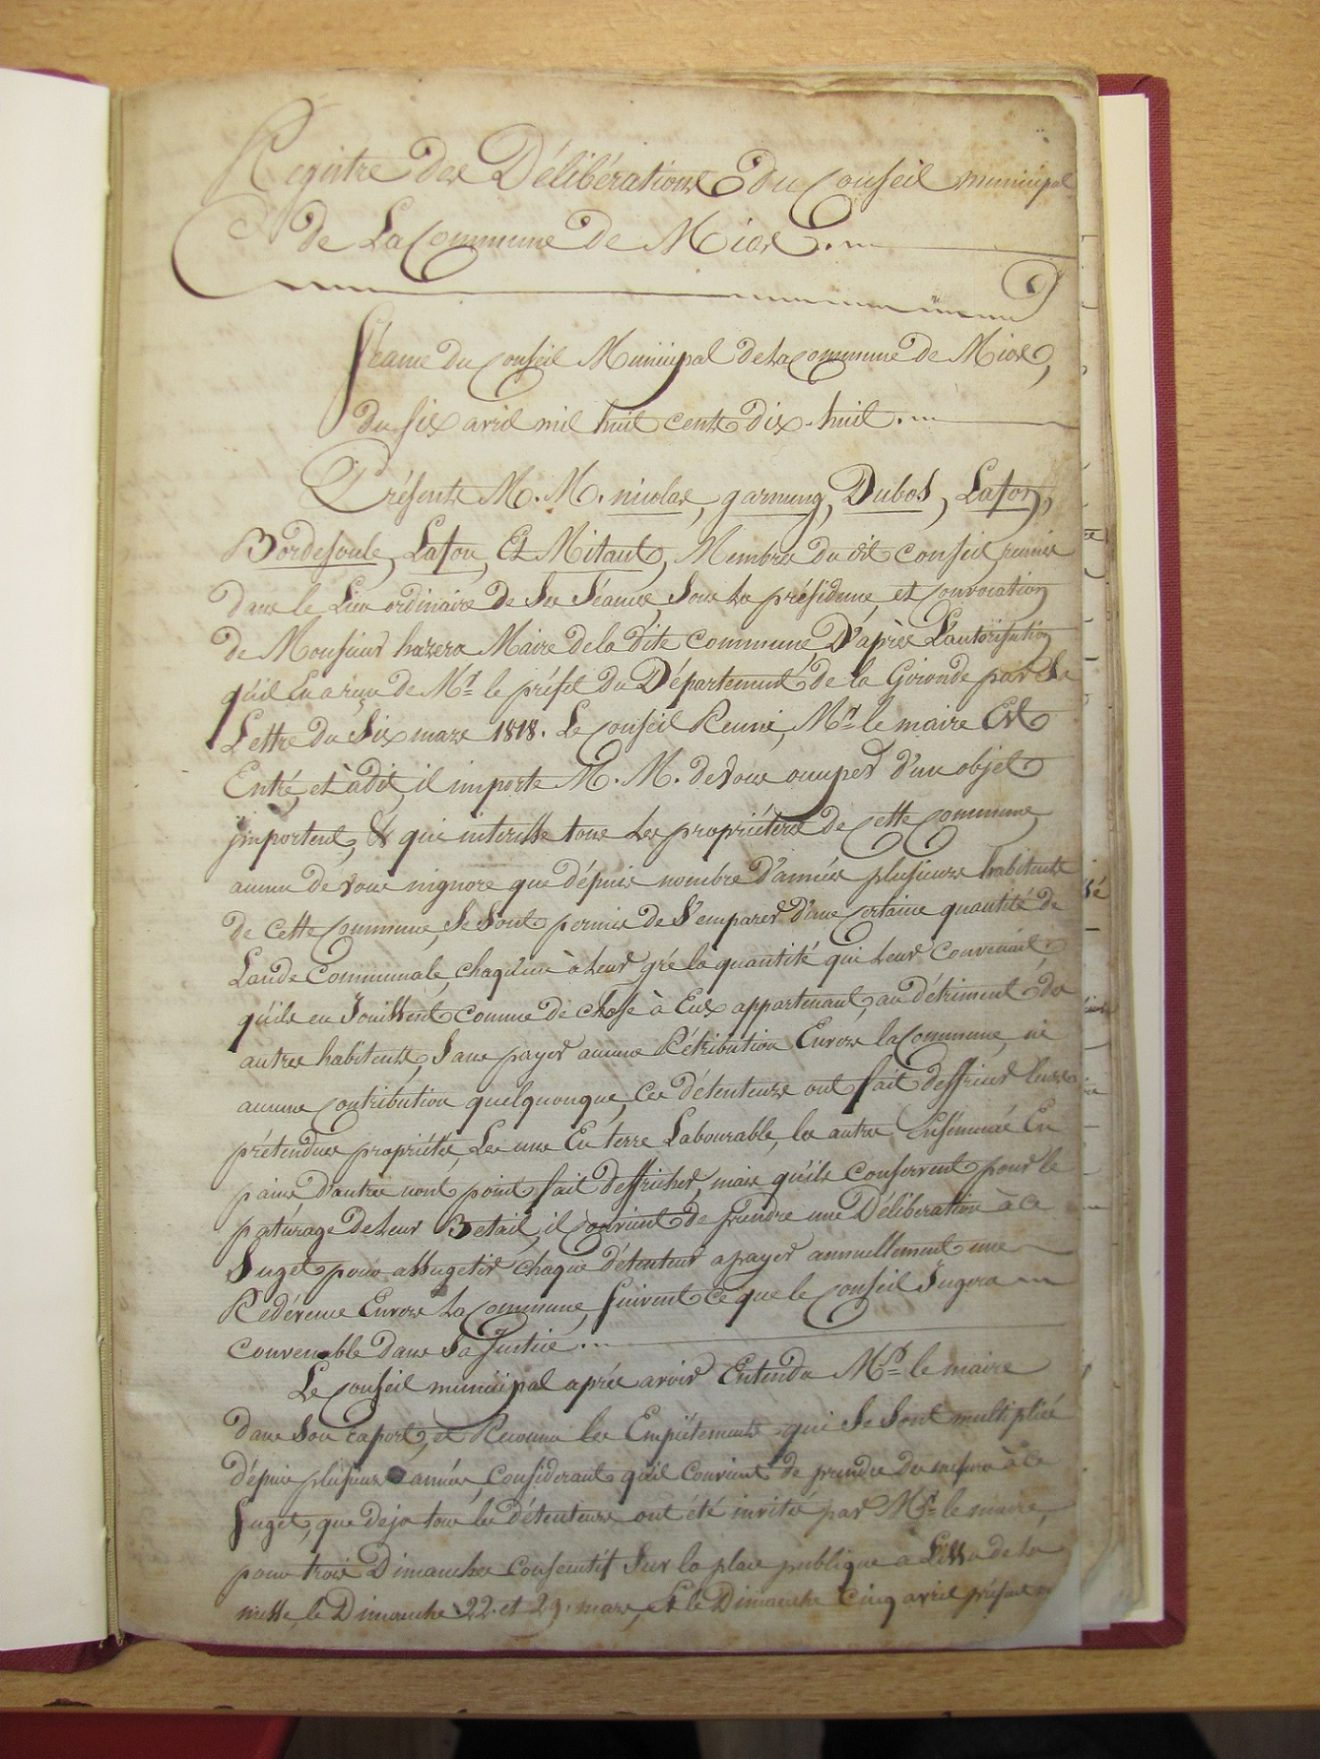 Registre des Délibérations du Conseil municipal
de La Commune de Mios.
Séance du Conseil Municipal de La Commune de Mios,
du six avril mil huit cents dix-huit.
Présents M. M. nicolas, garnung, Dubos, Lafon,
Bordesoule, Lafon, Et Mitaut, Membres du dit conseil reunis
dans le Lieu ordinaire de Ses Séances, Sous La présidence, et Convocation
de Monsieur hazera Maire de la dite commune, D'après L'autorisation
qu'il En a reçu de Mr. le préfet du Département de la Gironde par Sa
Lettre du Six mars 1818. Le Conseil Reuni, Mr. le maire Est
Entré, et à dit, il importe M. M. de vous occuper d'un objet
important, & qui interesse tous Les propriéteres de Cette Commune,
aucun de vous nignore que dépuis nombre d'années plusieurs habitents
de cette Commune, Se Sont permis de S'emparer d'une Certaine quantité de
Lande Communale, chaqu'un à Leur gré la quantité qui Leur Convenait,
qu'ils en Jouissent comme de chose à Eux appartenant, au détriment des
autres habitents, Sans payer aucune Rétribution Envers la Commune, ni
aucune Contribution quelquonque, Ces détenteurs ont fait deffricher leurs
prétendues propriétés, Les uns En terre Labourable, les autres Ensémancé En
pins, D'autres n'ont point fait deffricher, mais qu'ils conservent pour le
paturage de Leur Betail, il Convient de prendre une Déliberation à ce
Suget pour assugetir chaque détenteur a payer annuellement une
Redévence Envers La Commune, Suivent ce que le Conseil Jugera
convenable dans Sa Justice.
Le Conseil municipal après avoir Entendu Mr. le maire
dans Son raport, et Reconnu les Empiétements qui Se Sont multipliés
dépuis plusieurs années, Considerant qu'il Convient de prendre des mesures à ce
Suget, que deja tous les détenteurs ont été invités par Mr. le maire,
pour trois Dimanches Consecutif Sur la place publique a L'issu de La
messe, le Dimanche 22. et 29. mars, Et le Dimanche Cinq avril présent